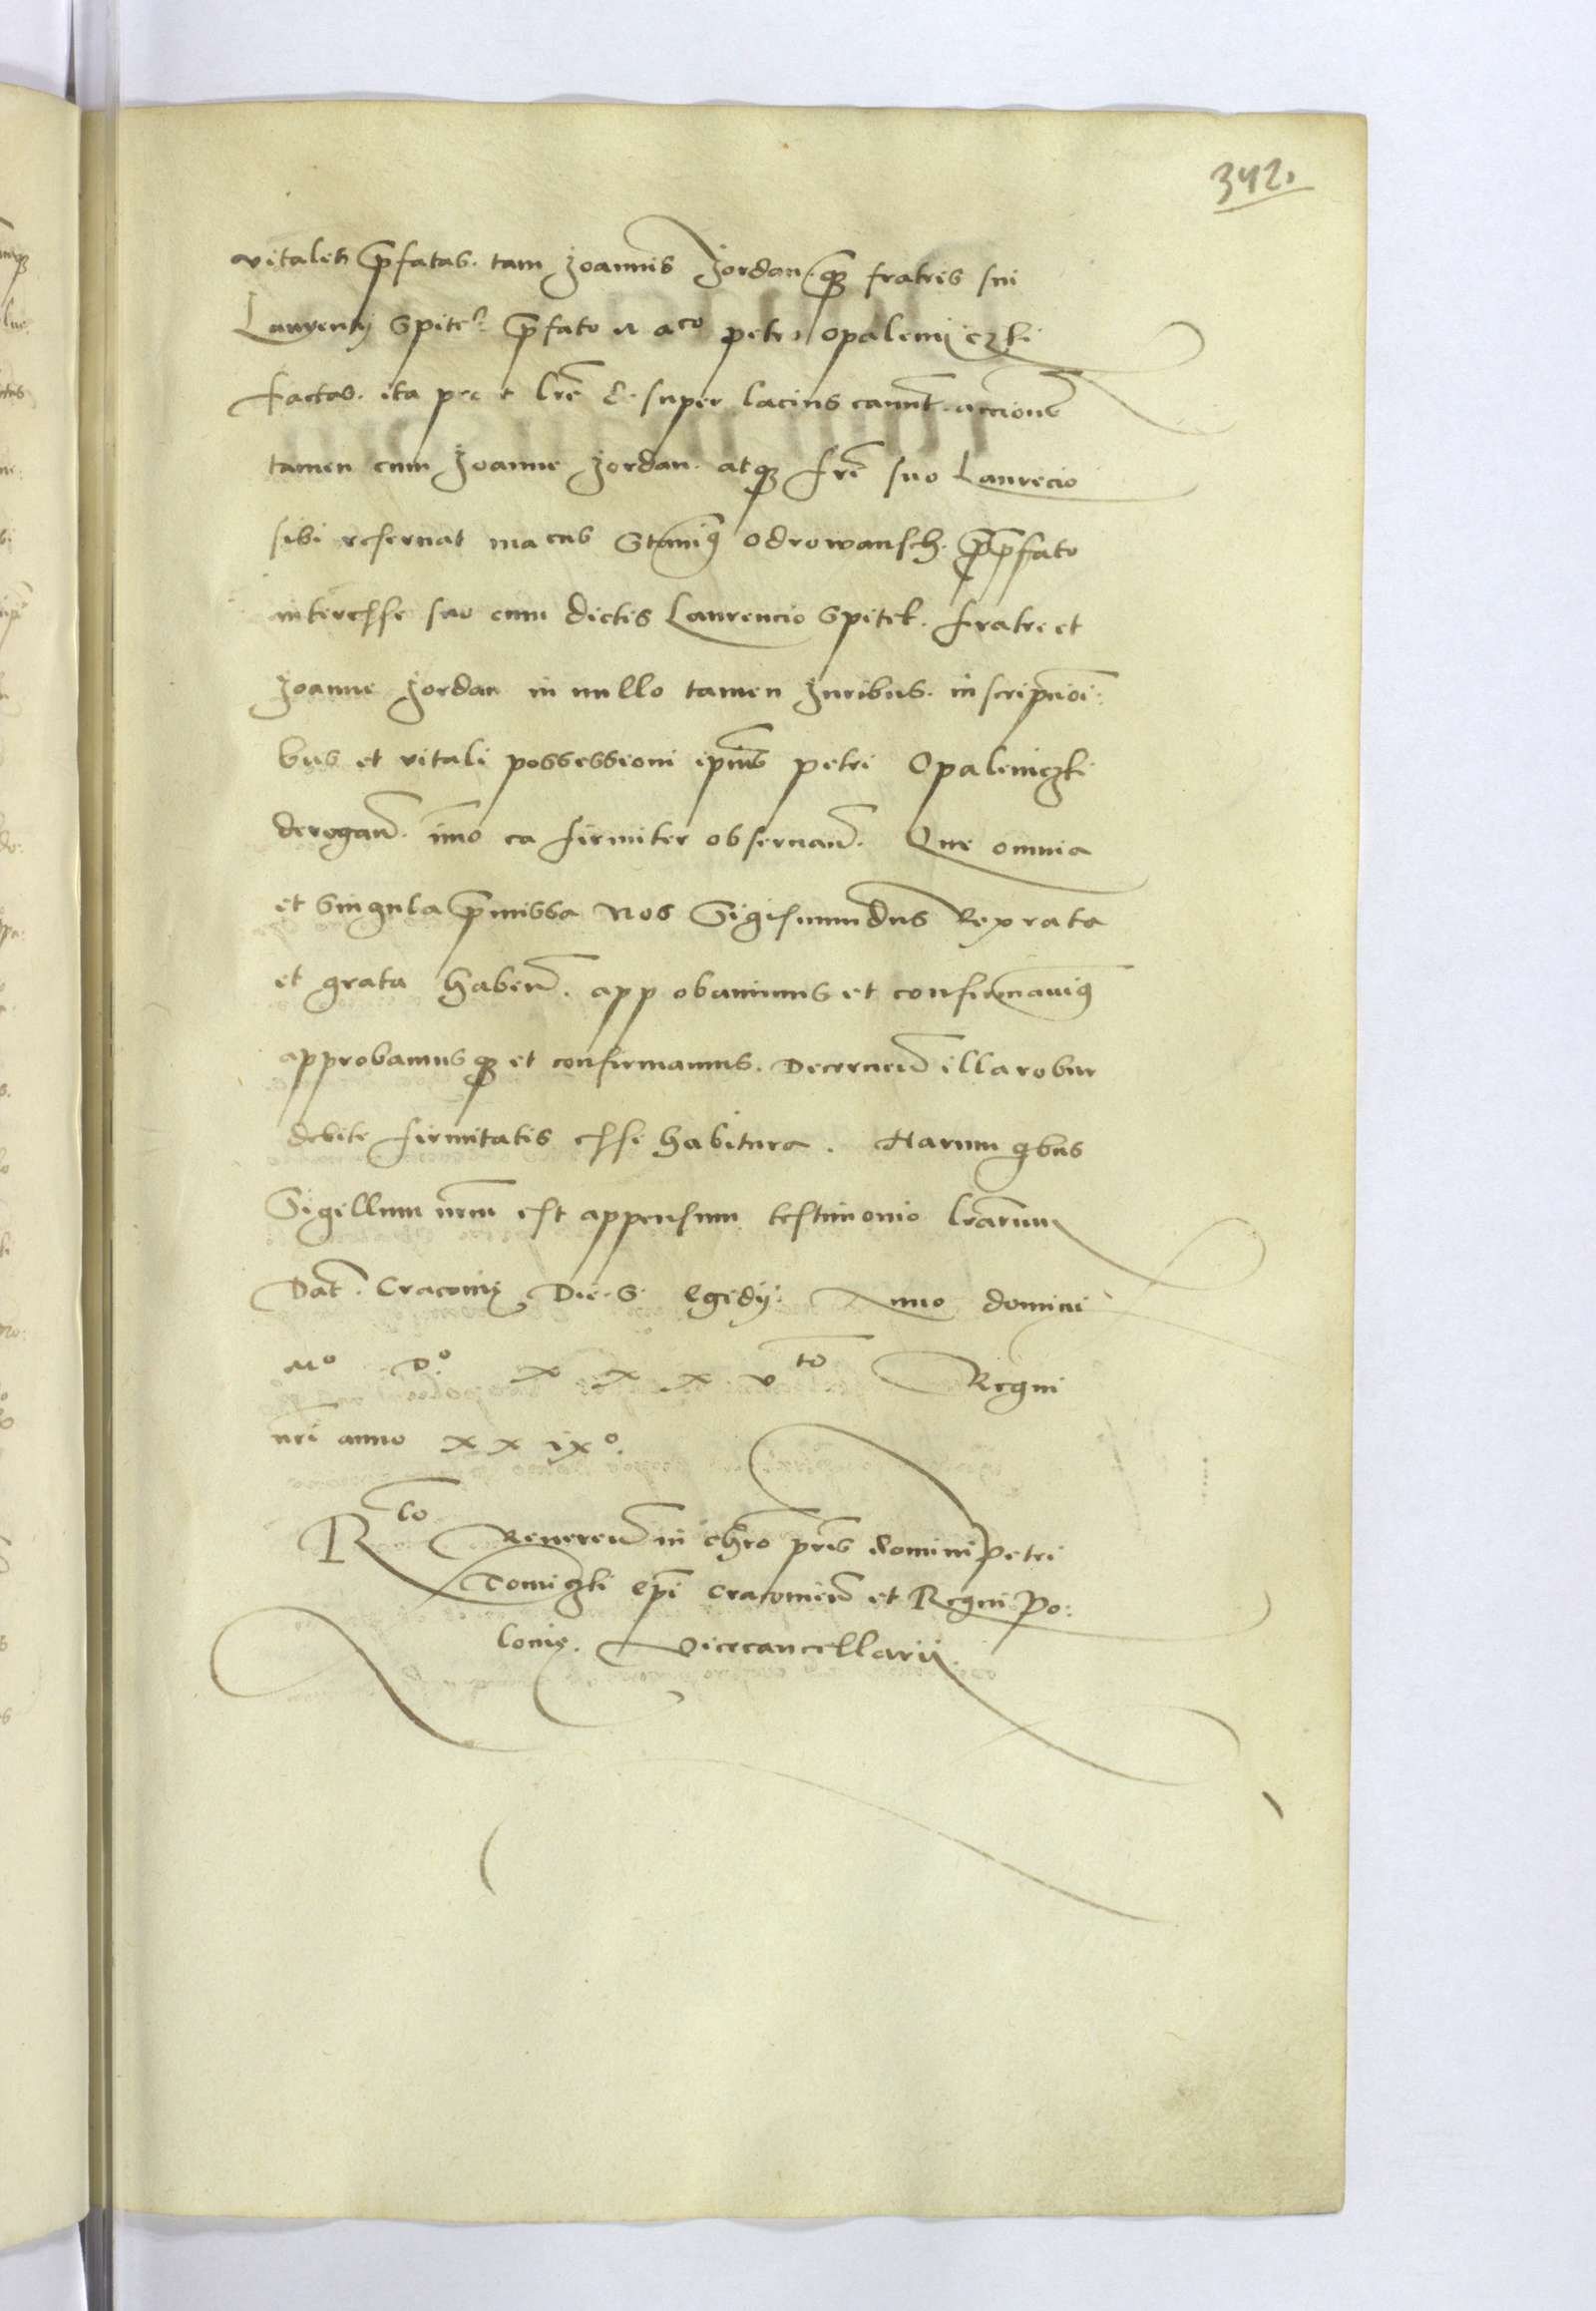 342.
vitaliẽ p̃fatas. tam Joannis Jordan. q̃ȝ fratris sui
Laurentij Spitek p̃fato M aco petro Opaleniczki
factas. ita prout l̃re &. super lacius canũt. acciones
tamen cum Joanne Jordan. atqȝ fr̃e suo Laurẽcio
sibi reseruat ma cus Staniꝰ Odrowansch. p̃ p̃fato
interesse suo cum dictis Laurencio Spitek. fratre et
Joanne Jordan in nullo tamen Juribus. inscripcioĩ:
bus et vitali possessioni ip̃ius petri Opaleniczki
derogañ. ĩmo ea firmiter obseruañ. Que omnia
et singula p̃missa Nos Sigismundus Rex rata
et grata habeñ. approbauimus et confirmauimꝰ
approbamusqȝ et confirmamus. Decerneñ illa robur
debite firmitatis esse habitura. Harum qbus
Sigillum nr̃m est appensum testimonio l̃rarum
Dat̃. Cracouię Die. S. Egidij. Anno domini
Mo Do. x x x vto Regni
nr̃i anno x x ixo.
Rlo Reuereñ in chr̃o pr̃is domini Petri
Tomiczki ep̃i Cracouieñ et Regni Po:
lonię. Vicecancellarij.